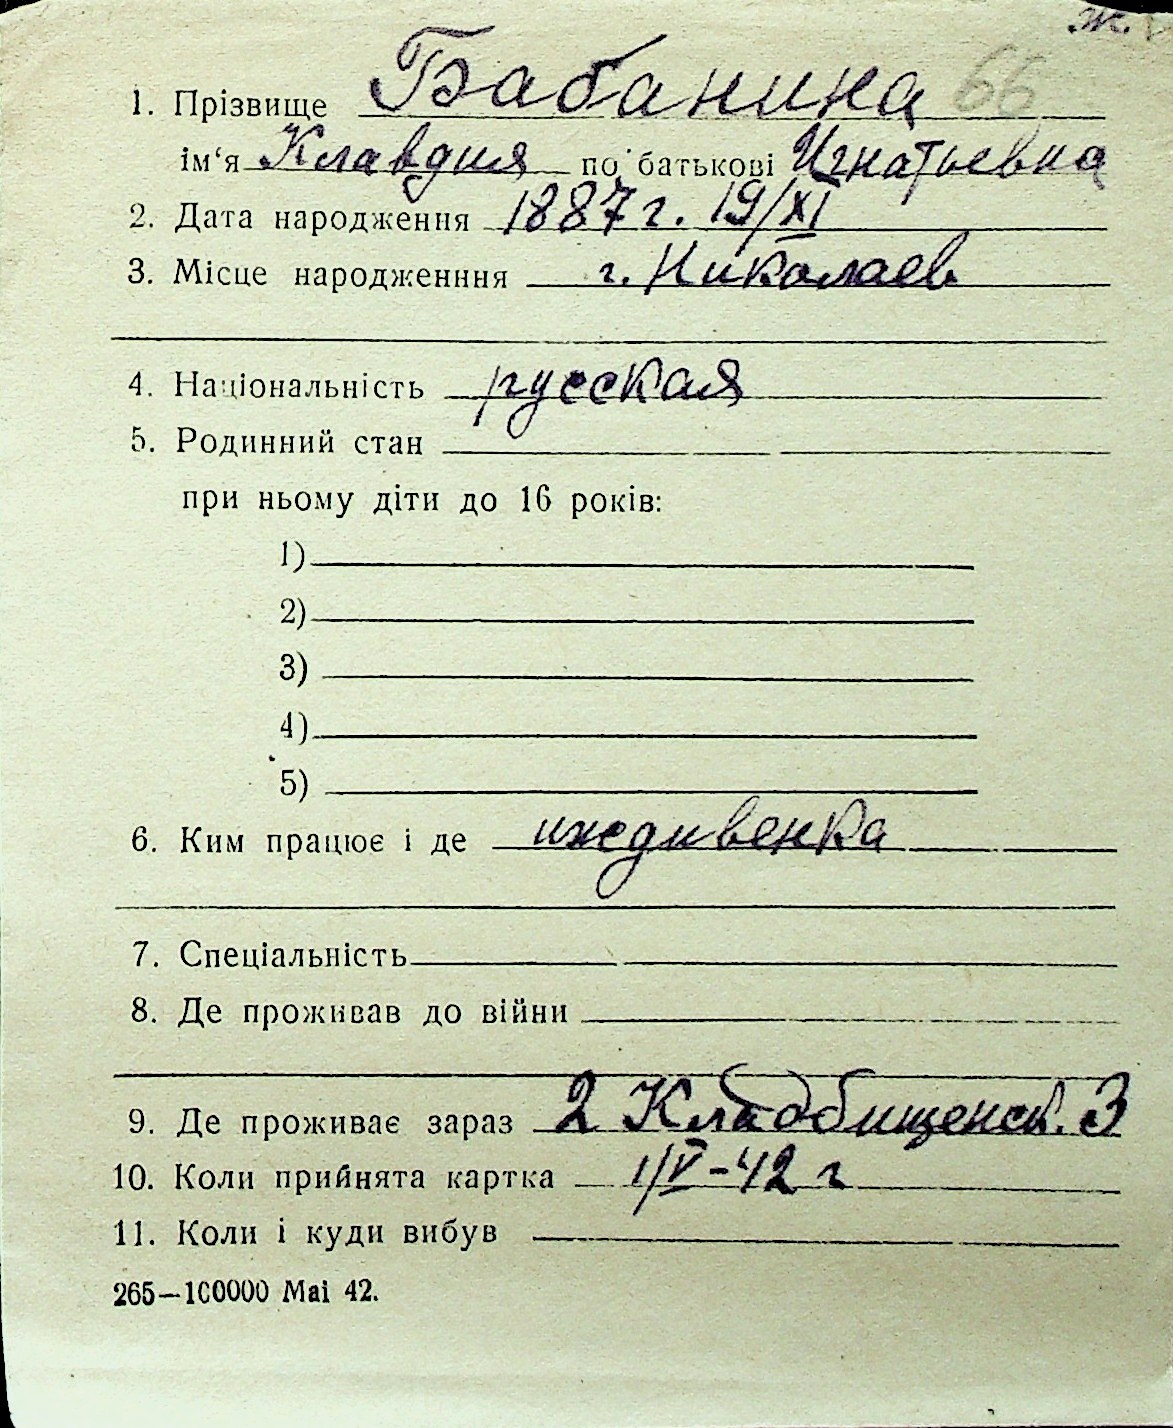 ж.
1. Прізвище Бабанина 66
ім‘я Клавдия по батькові Игнатьевна
2. Дата народження 1887 г. 19/XI
3. Місце народженння г. Николаев
4. Національність русская
5. Родинний стан
при ньому діти до 16 років:
1)
2)
3)
4)
5)
6. Ким працює і де иждивенка
7. Спеціальність
8. Де проживав до війни
9. Де проживає зараз 2 Кладбищенск. 3
10. Коли прийнята картка 1/V-42 г
11. Коли і куди вибув
265—100000 Mai 42.